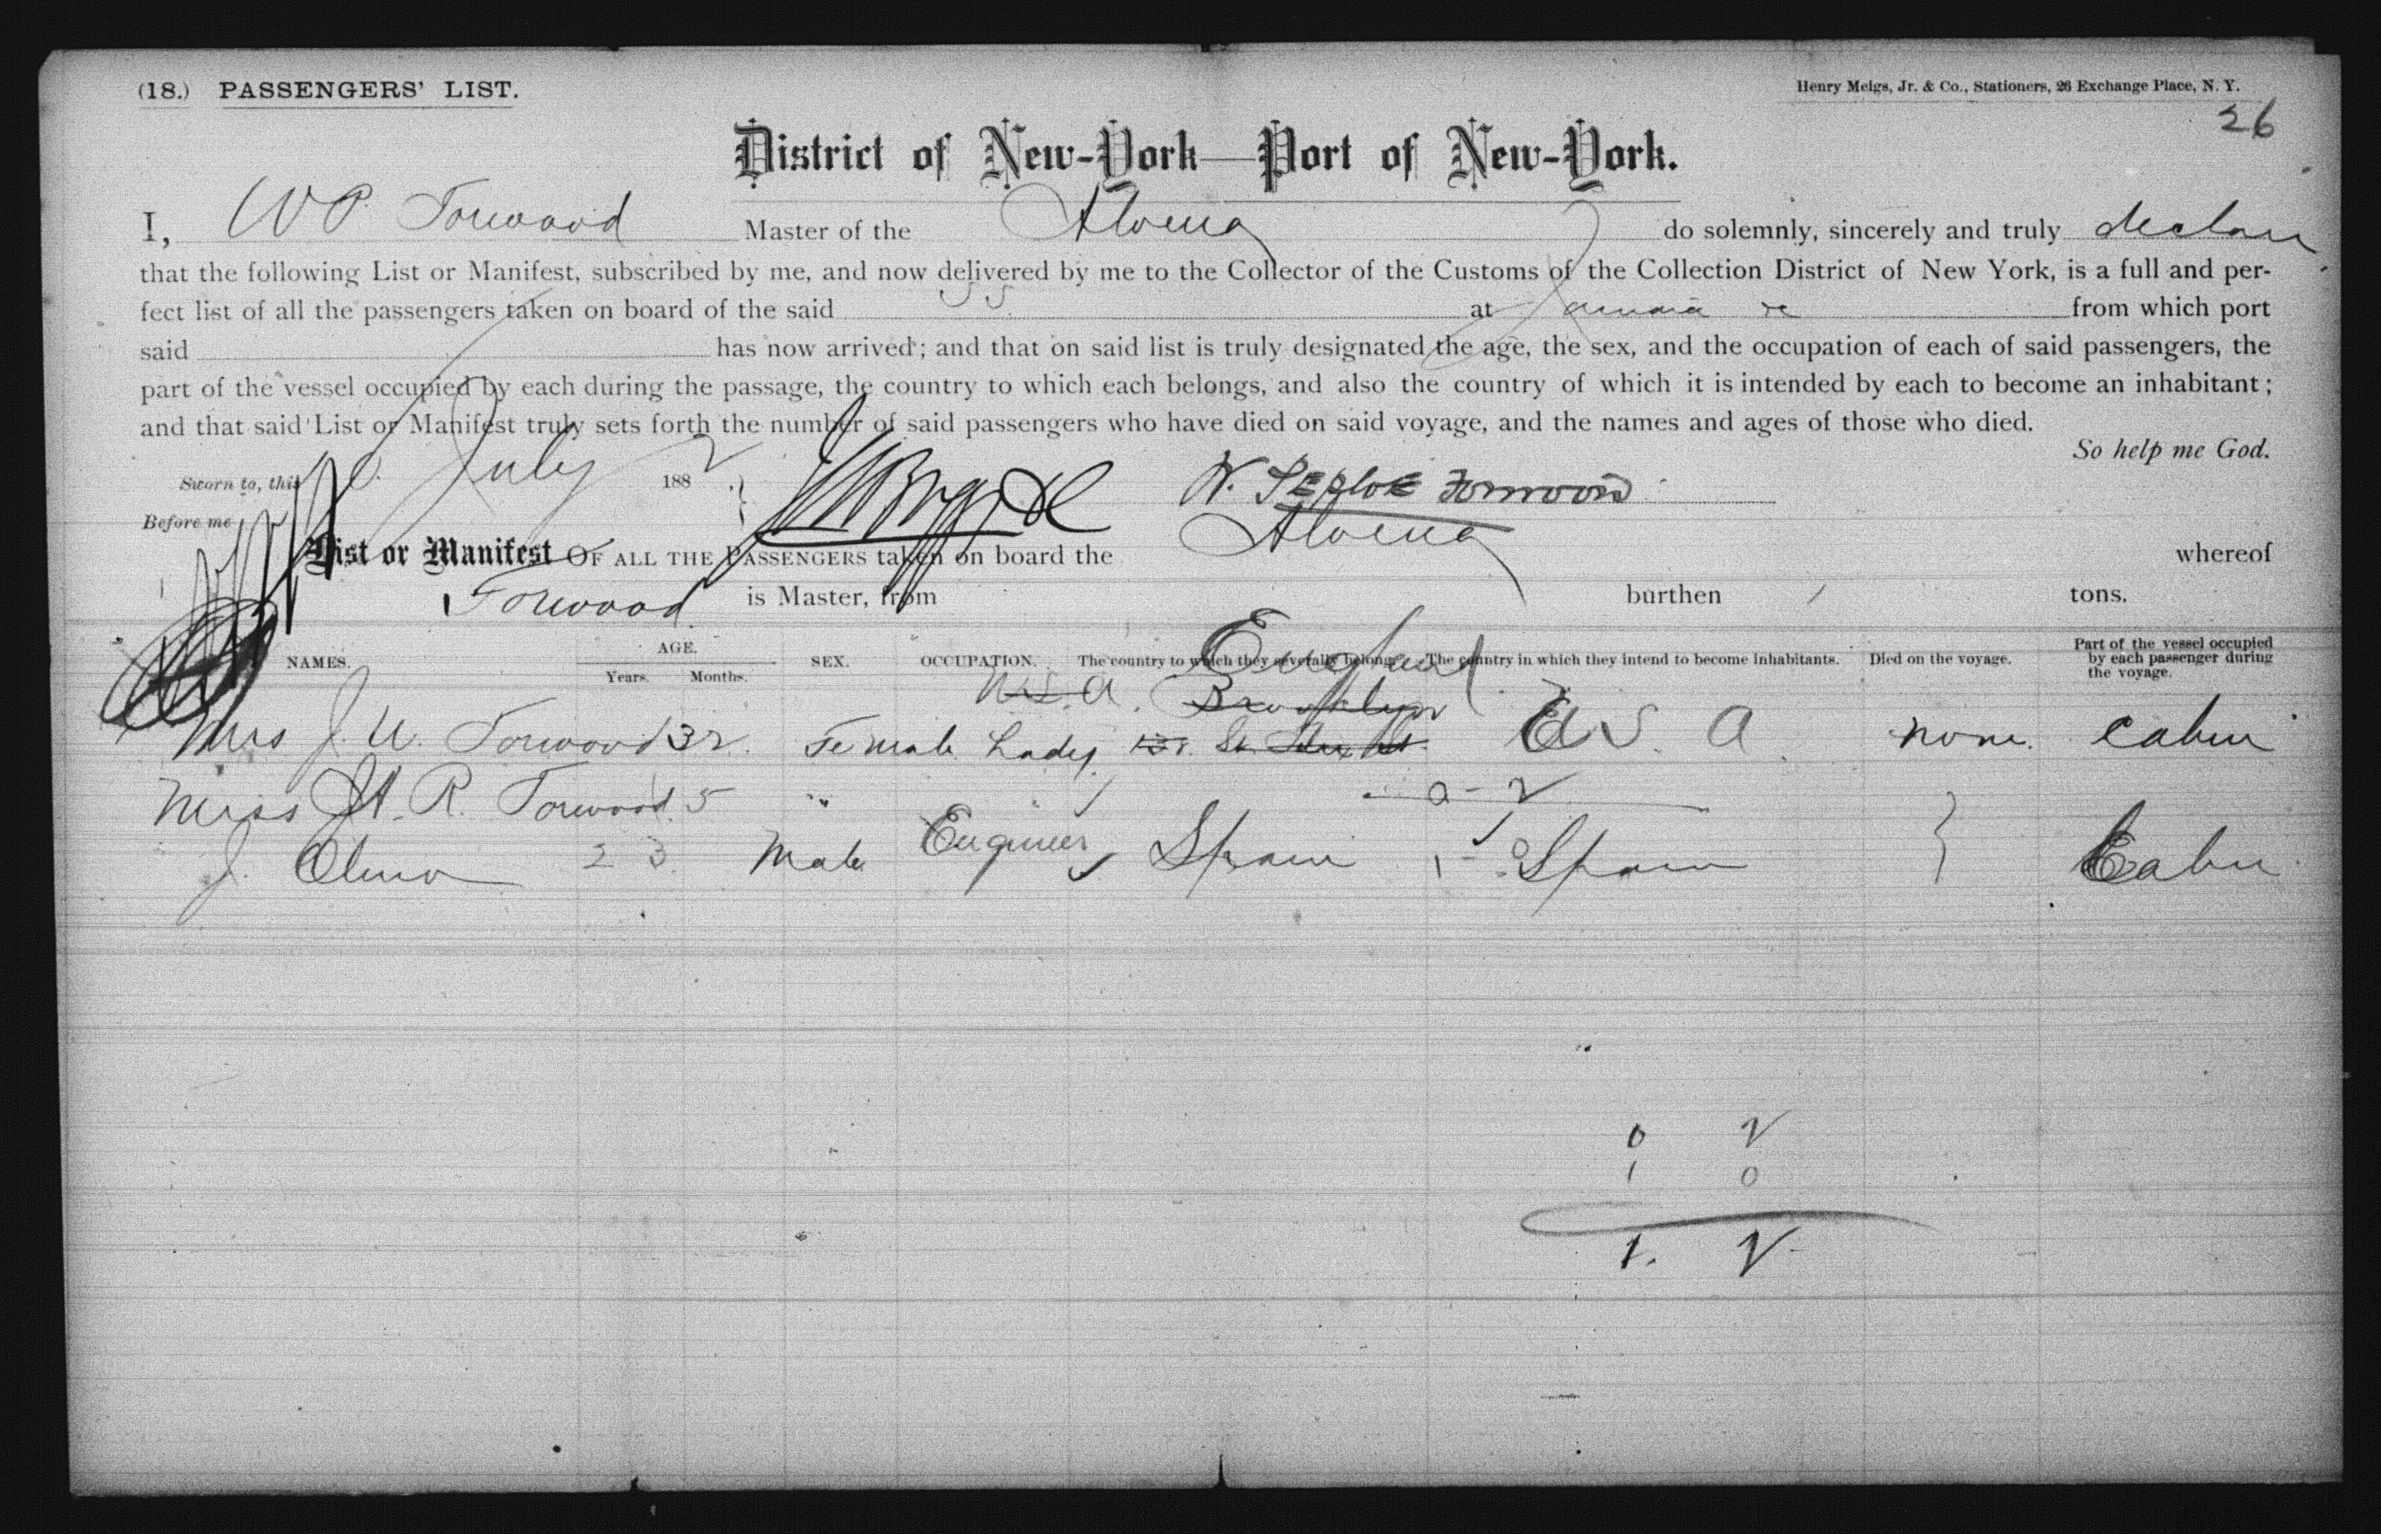 (18.) PASSENGERS' LIST.
Henry Meigs, Jr. & Co., Stationers, 26 Exchange Place, N. Y.
26
District of New-York—Port of New-York.
I, W P. Forwood Master of the Alvena do solemnly, sincerely and truly declare
that the following List or Manifest, subscribed by me, and now delivered by me to the Collector of the Customs of the Collection District of New York, is a full and per-
fect list of all the passengers taken on board of the said SS. at Jamaica from which port
said has now arrived; and that on said list is truly designated the age, the sex, and the occupation of each of said passengers, the
part of the vessel occupied by each during the passage, the country to which each belongs, and also the country of which it is intended by each to become an inhabitant;
and that said List or Manifest truly sets forth the number of said passengers who have died on said voyage, and the names and ages of those who died.
So help me God.
Sworn to, this July 1882
W. Peploe Forwood
Before me
List or Manifest OF ALL THE PASSENGERS taken on board the Alvena whereof
Forwood is Master, from burthen tons.
NAMES. AGE. Years. Months. SEX. OCCUPATION. The country to which they severally belong. The country in which they intend to become inhabitants. Died on the voyage. Part of the vessel occupied by each passenger during the voyage.
England
U.S.A. Brooklyn
Mrs J. U. Forwood 32. Female Lady U S. A none. Cabin
Miss H. R. Forwood. 5 "
J. Olmo 23 Male Engineer Spain Spain Cabin
0 2
1 0
1. 2